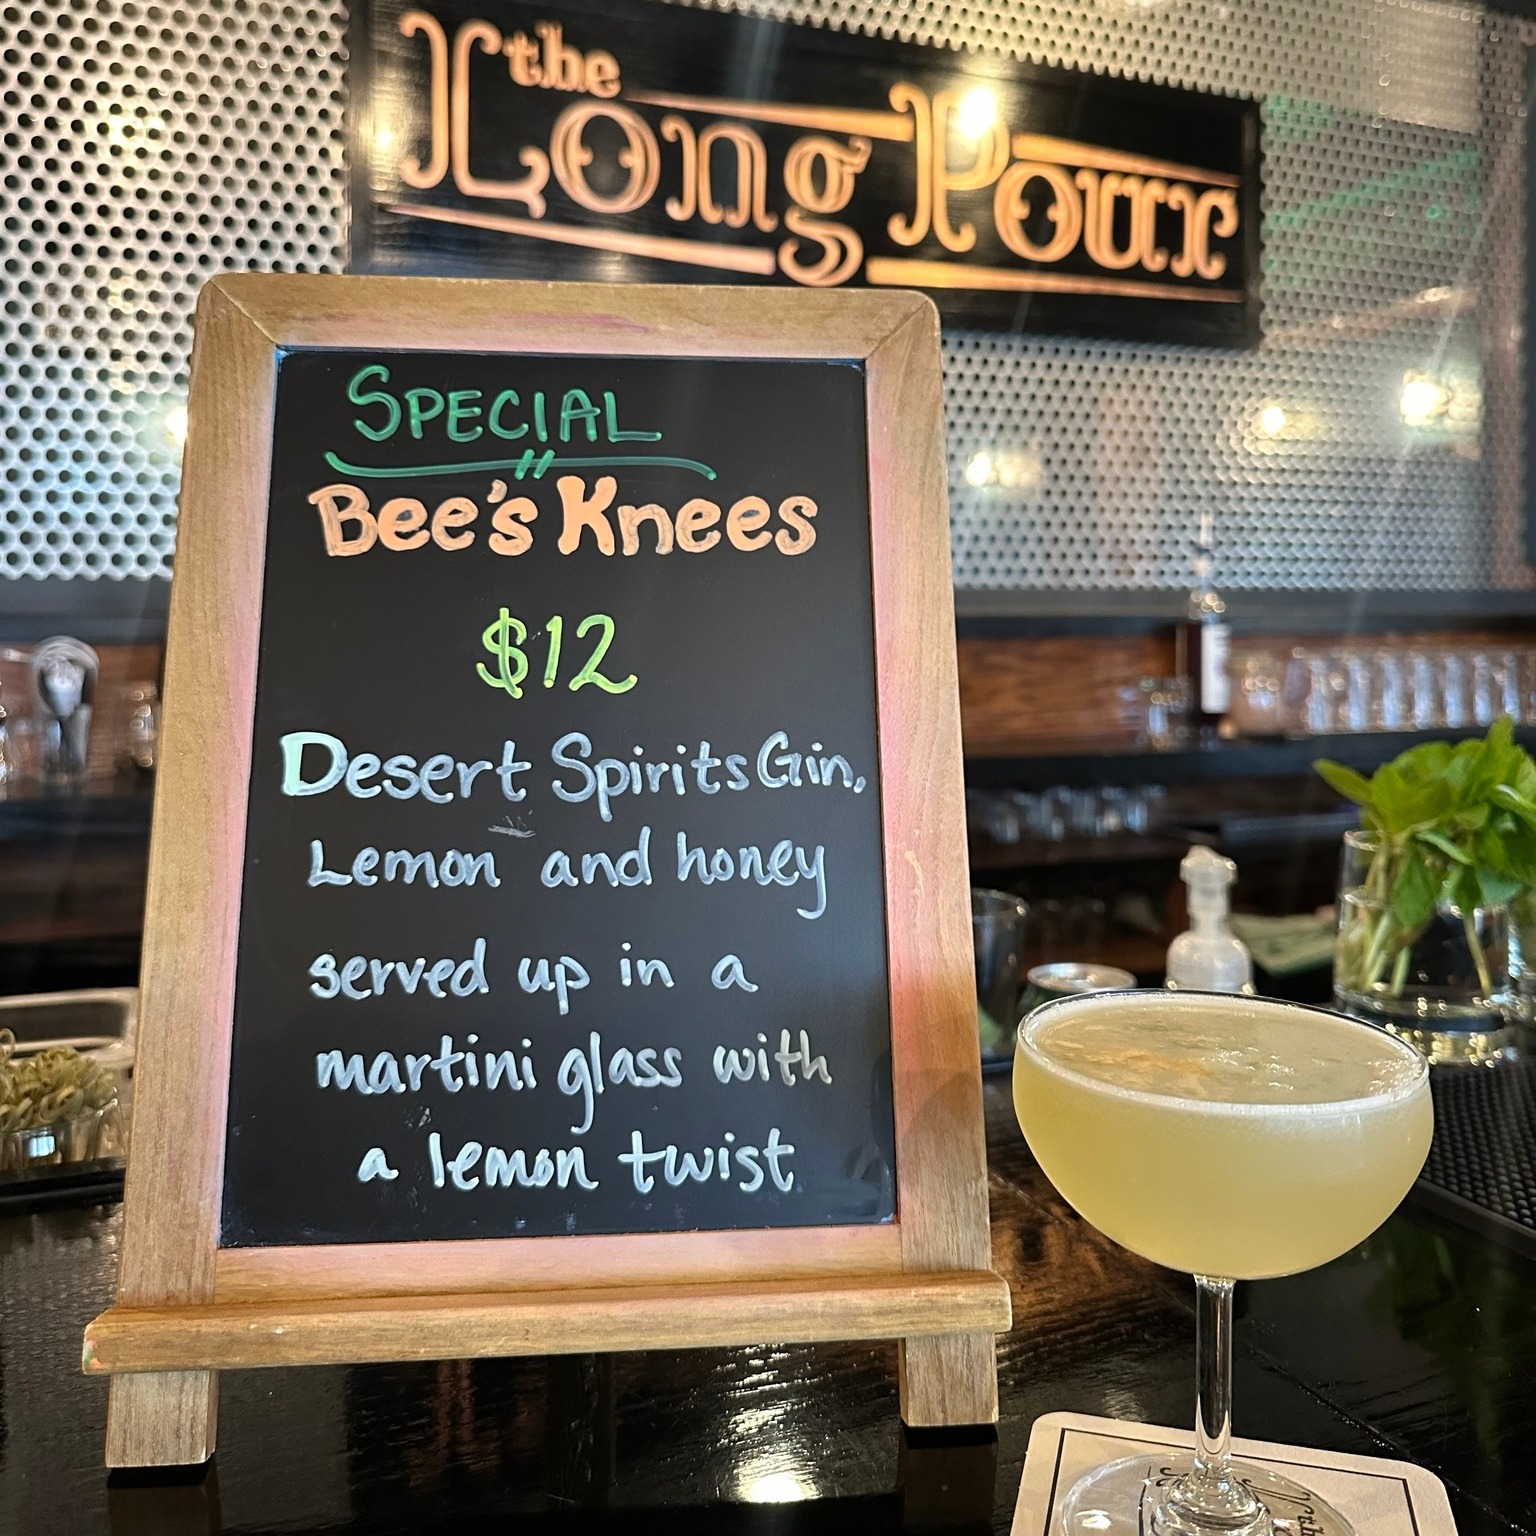 the
Long Pour
SPECIAL
Bee's Knees
$12
Desert Spirits Gin,
Lemon and honey
served up in a
martini glass with
a lemon twist